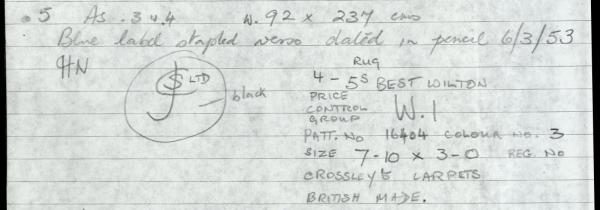 .5 As .3 & .4 W. 92 x 237 cms
Blue label stapled verso dated in pencil 6/3/53
HN
JS LTD
black
RUG
4 - 5s BEST WILTON
PRICE
CONTROL
GROUP
W.1
PATT. No 16404 COLOUR NO. 3
SIZE 7-10 x 3-0 REG. NO
CROSSLEY'S CARPETS
BRITISH MADE.